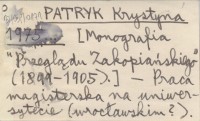 PATRYK Krystyna
1975 [Monografia
"Przeglądu Zakopiańskiego"
(1899-1905).] — Praca
magisterska na uniwer-
sytecie (wrocławskim?).